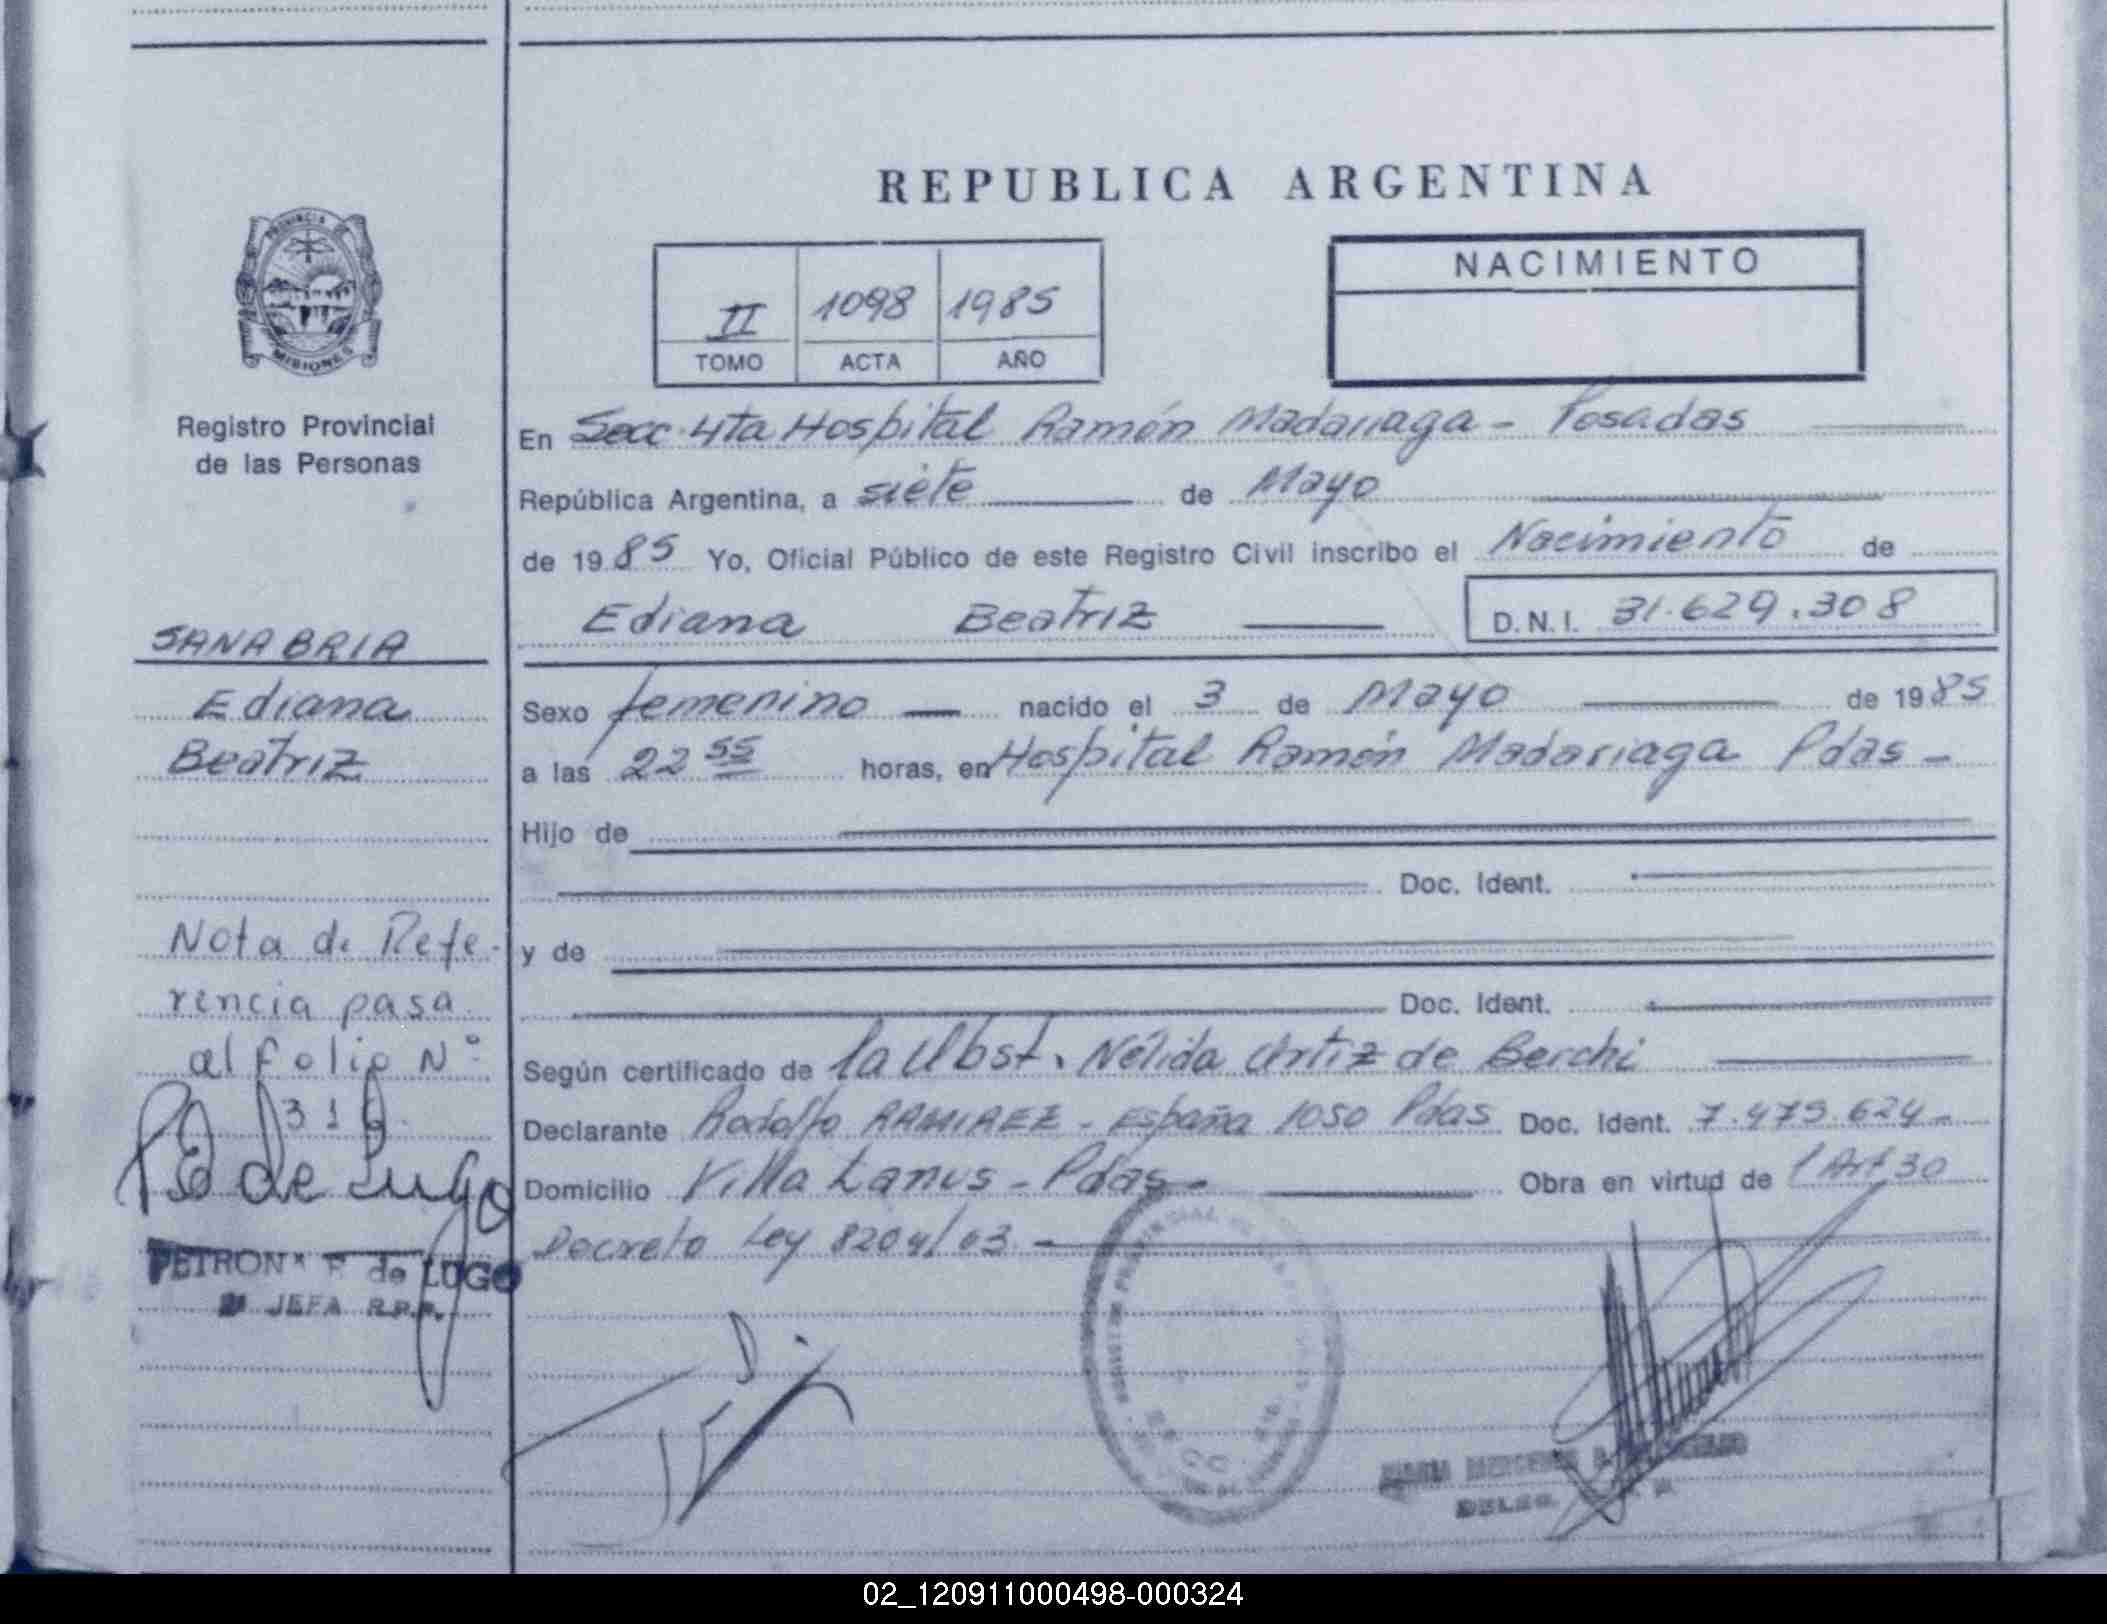 REPUBLICA ARGENTINA
PROVINCIA DE
MISIONES
Registro Provincial
de las Personas
II 1098 1985
TOMO ACTA AÑO
NACIMIENTO
En Secc. 4ta Hospital Ramón Madariaga - Posadas
República Argentina, a siete de Mayo
de 1985 Yo, Oficial Público de este Registro Civil inscribo el Nacimiento de
Ediana Beatriz D.N.I. 31.629.308
SANABRIA
Ediana
Beatriz
Sexo femenino nacido el 3 de Mayo de 1985
a las 22 55 horas, en Hospital Ramón Madariaga Pdas -
Hijo de
Doc. Ident.
y de
Doc. Ident.
Según certificado de la Obst. Nélida Ortiz de Berchi
Declarante Rodolfo RAMIREZ - España 1050 Pdas Doc. Ident. 7.475.624-
Domicilio Villa Lanus - Pdas - Obra en virtud de Art 30
Decreto Ley 8204/63 -
Nota de Refe-
rencia pasa
al folio Nº
316.
de Lugo
PETRONA de LUGO
JEFA R.P.P.
02_120911000498-000324